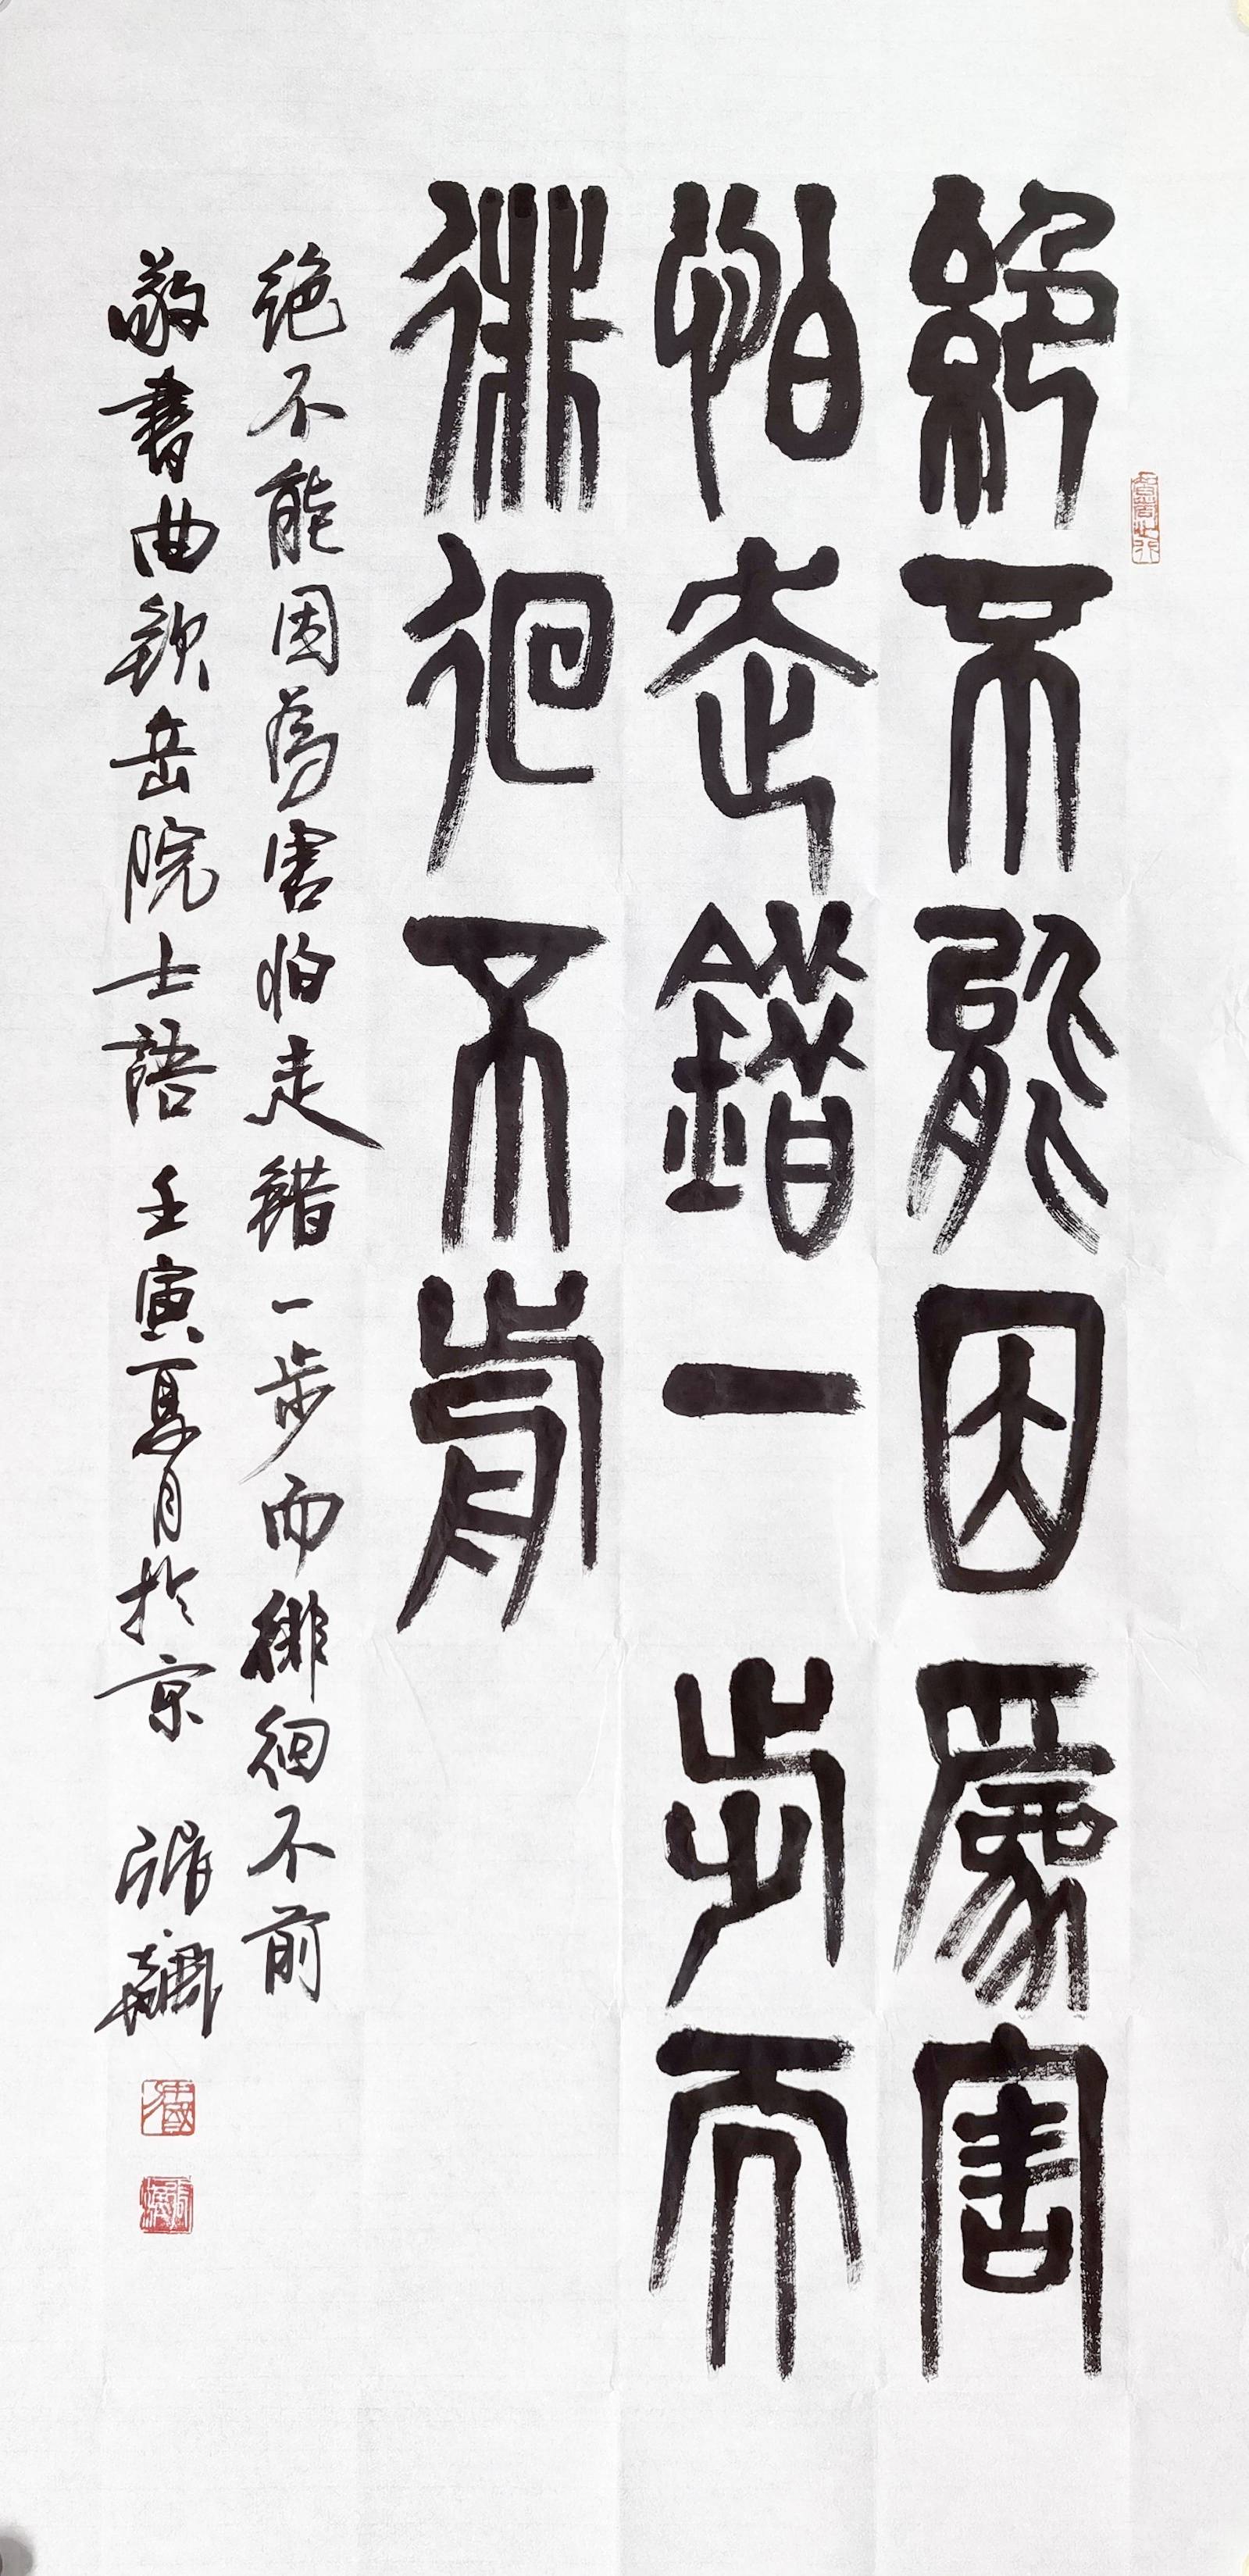 絕不能因爲害
怕走錯一步而
徘徊不前
绝不能因為害怕走錯一步而徘徊不前
敬書曲欽岳院士語 壬寅夏月於京 張